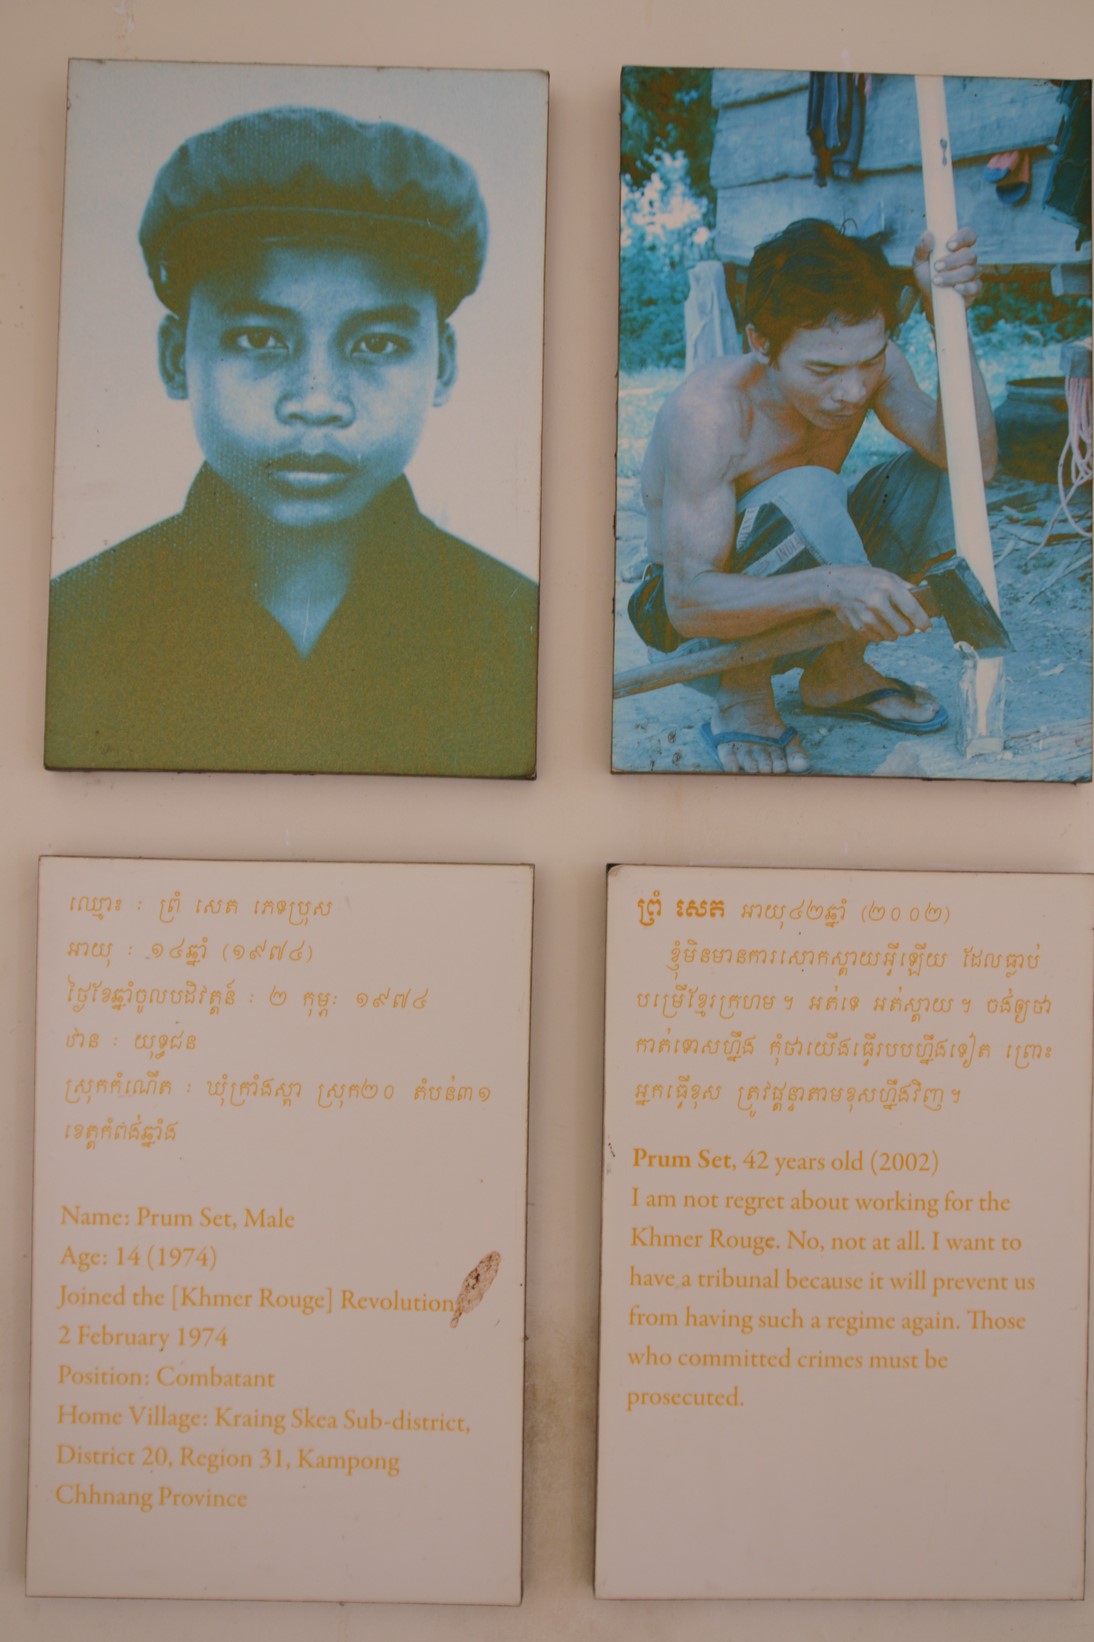 ឈ្មោះ : ព្រំ សេត ភេទប្រុស
អាយុ : ១៤ឆ្នាំ (១៩៧៤)
ថ្ងៃខែឆ្នាំចូលបដិវត្តន៍ : ២ កុម្ភៈ ១៩៧៤
ឋានៈ : យុទ្ធជន
ស្រុកកំណើត : ឃុំក្រាំងស្គា ស្រុក២០ តំបន់៣១
ខេត្តកំពង់ឆ្នាំង
Name: Prum Set, Male
Age: 14 (1974)
Joined the [Khmer Rouge] Revolution
2 February 1974
Position: Combatant
Home Village: Kraing Skea Sub-district,
District 20, Region 31, Kampong
Chhnang Province
ព្រំ សេត អាយុ៤២ឆ្នាំ (២០០២)
ខ្ញុំមិនមានការសោកស្ដាយអ្វីឡើយ ដែលធ្លាប់
បម្រើខ្មែរក្រហម។ អត់ទេ អត់ស្ដាយ។ ចង់ឲ្យថា
កាត់ទោសហ្នឹង កុំថាយើងធ្វើរបបហ្នឹងទៀត ព្រោះ
អ្នកធ្វើខុស ត្រូវផ្ដន្ទាតាមខុសហ្នឹងវិញ។
Prum Set, 42 years old (2002)
I am not regret about working for the
Khmer Rouge. No, not at all. I want to
have a tribunal because it will prevent us
from having such a regime again. Those
who committed crimes must be
prosecuted.